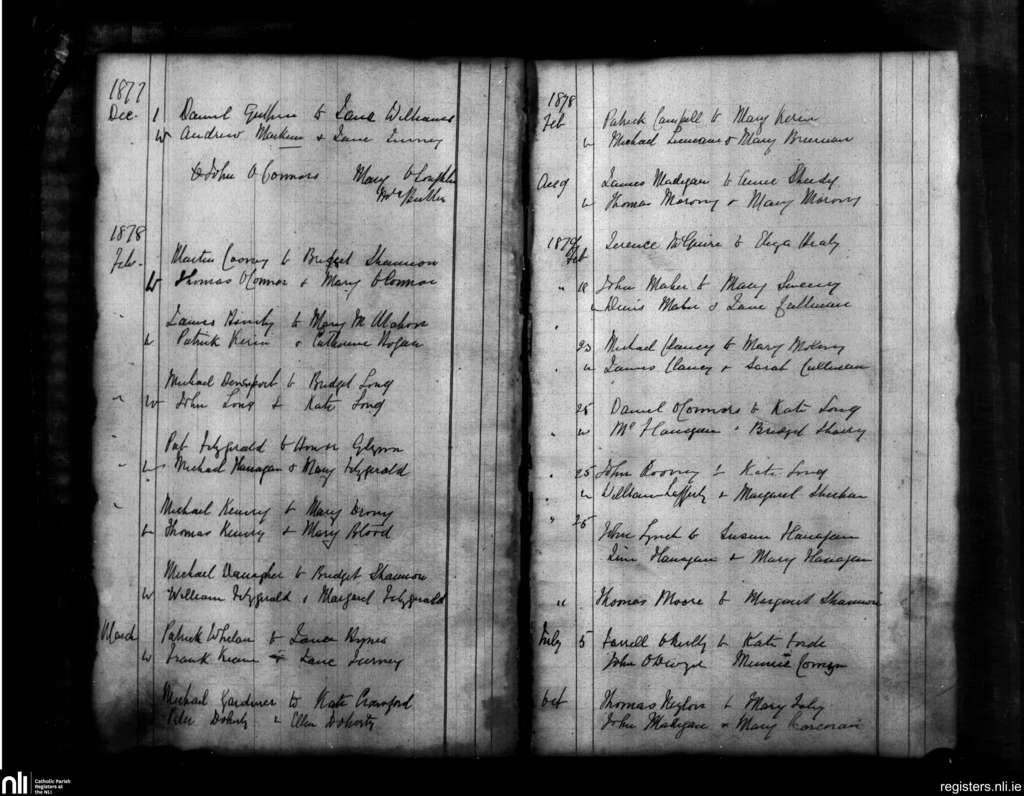 1877
Dec. 1 Daniel Guthrie to Jane Williams
W Andrew & Jane
John O'Connors Mary O'Loughlin
Butler
1878
Feb. Martin Cooney to Bridget Shannon
W Thomas O'Connor & Mary O'Connor
James to Mary McMahon
W Patrick Kerin & Catherine Hogan
Michael Davenport to Bridget Long
" W John Long & Kate Long
Pat Fitzgerald to Honor Glynn
" W Michael Flanagan & Mary Fitzgerald
" Michael Kenny to Mary Drony
W Thomas Kenny & Mary Blood
Michael Danagher to Bridget Shannon
W William Fitzgerald & Margaret Fitzgerald
March Patrick Whelan to Hynes
W Frank Keane & Jane
Michael Gardiner to Kate Crawford
Peter Doherty & Ellen Doherty
1878
Feb Patrick Campbell to Mary Kerin
W Michael & Mary Brennan
Aug James Madigan to Annie Sheedy
W Thomas Morony & Mary Morony
1879 Terence McGuire to Eliza Healy
Feb
" 18 John Maher to Mary Sweeney
Denis Maher & Jane Cullinan
"
23 Michael Clancy to Mary
" W James Clancy & Sarah Cullinan
25 Daniel O'Connors to Kate Long
" W Flanagan & Bridget
" 25 John Rooney to Kate Long
W William Lafferty & Margaret Sheehan
" 25
John Lynch to Susan Flanagan
Tim Flanagan & Mary Flanagan
" Thomas Moore to Margaret Shannon
July 5 Farrell O'Reilly to Kate Forde
John O'Dwyer Minnie
Oct Thomas Neylon to Mary
John Madigan & Mary Corcoran
nli
Catholic Parish
Registers at
the NLI
registers.nli.ie